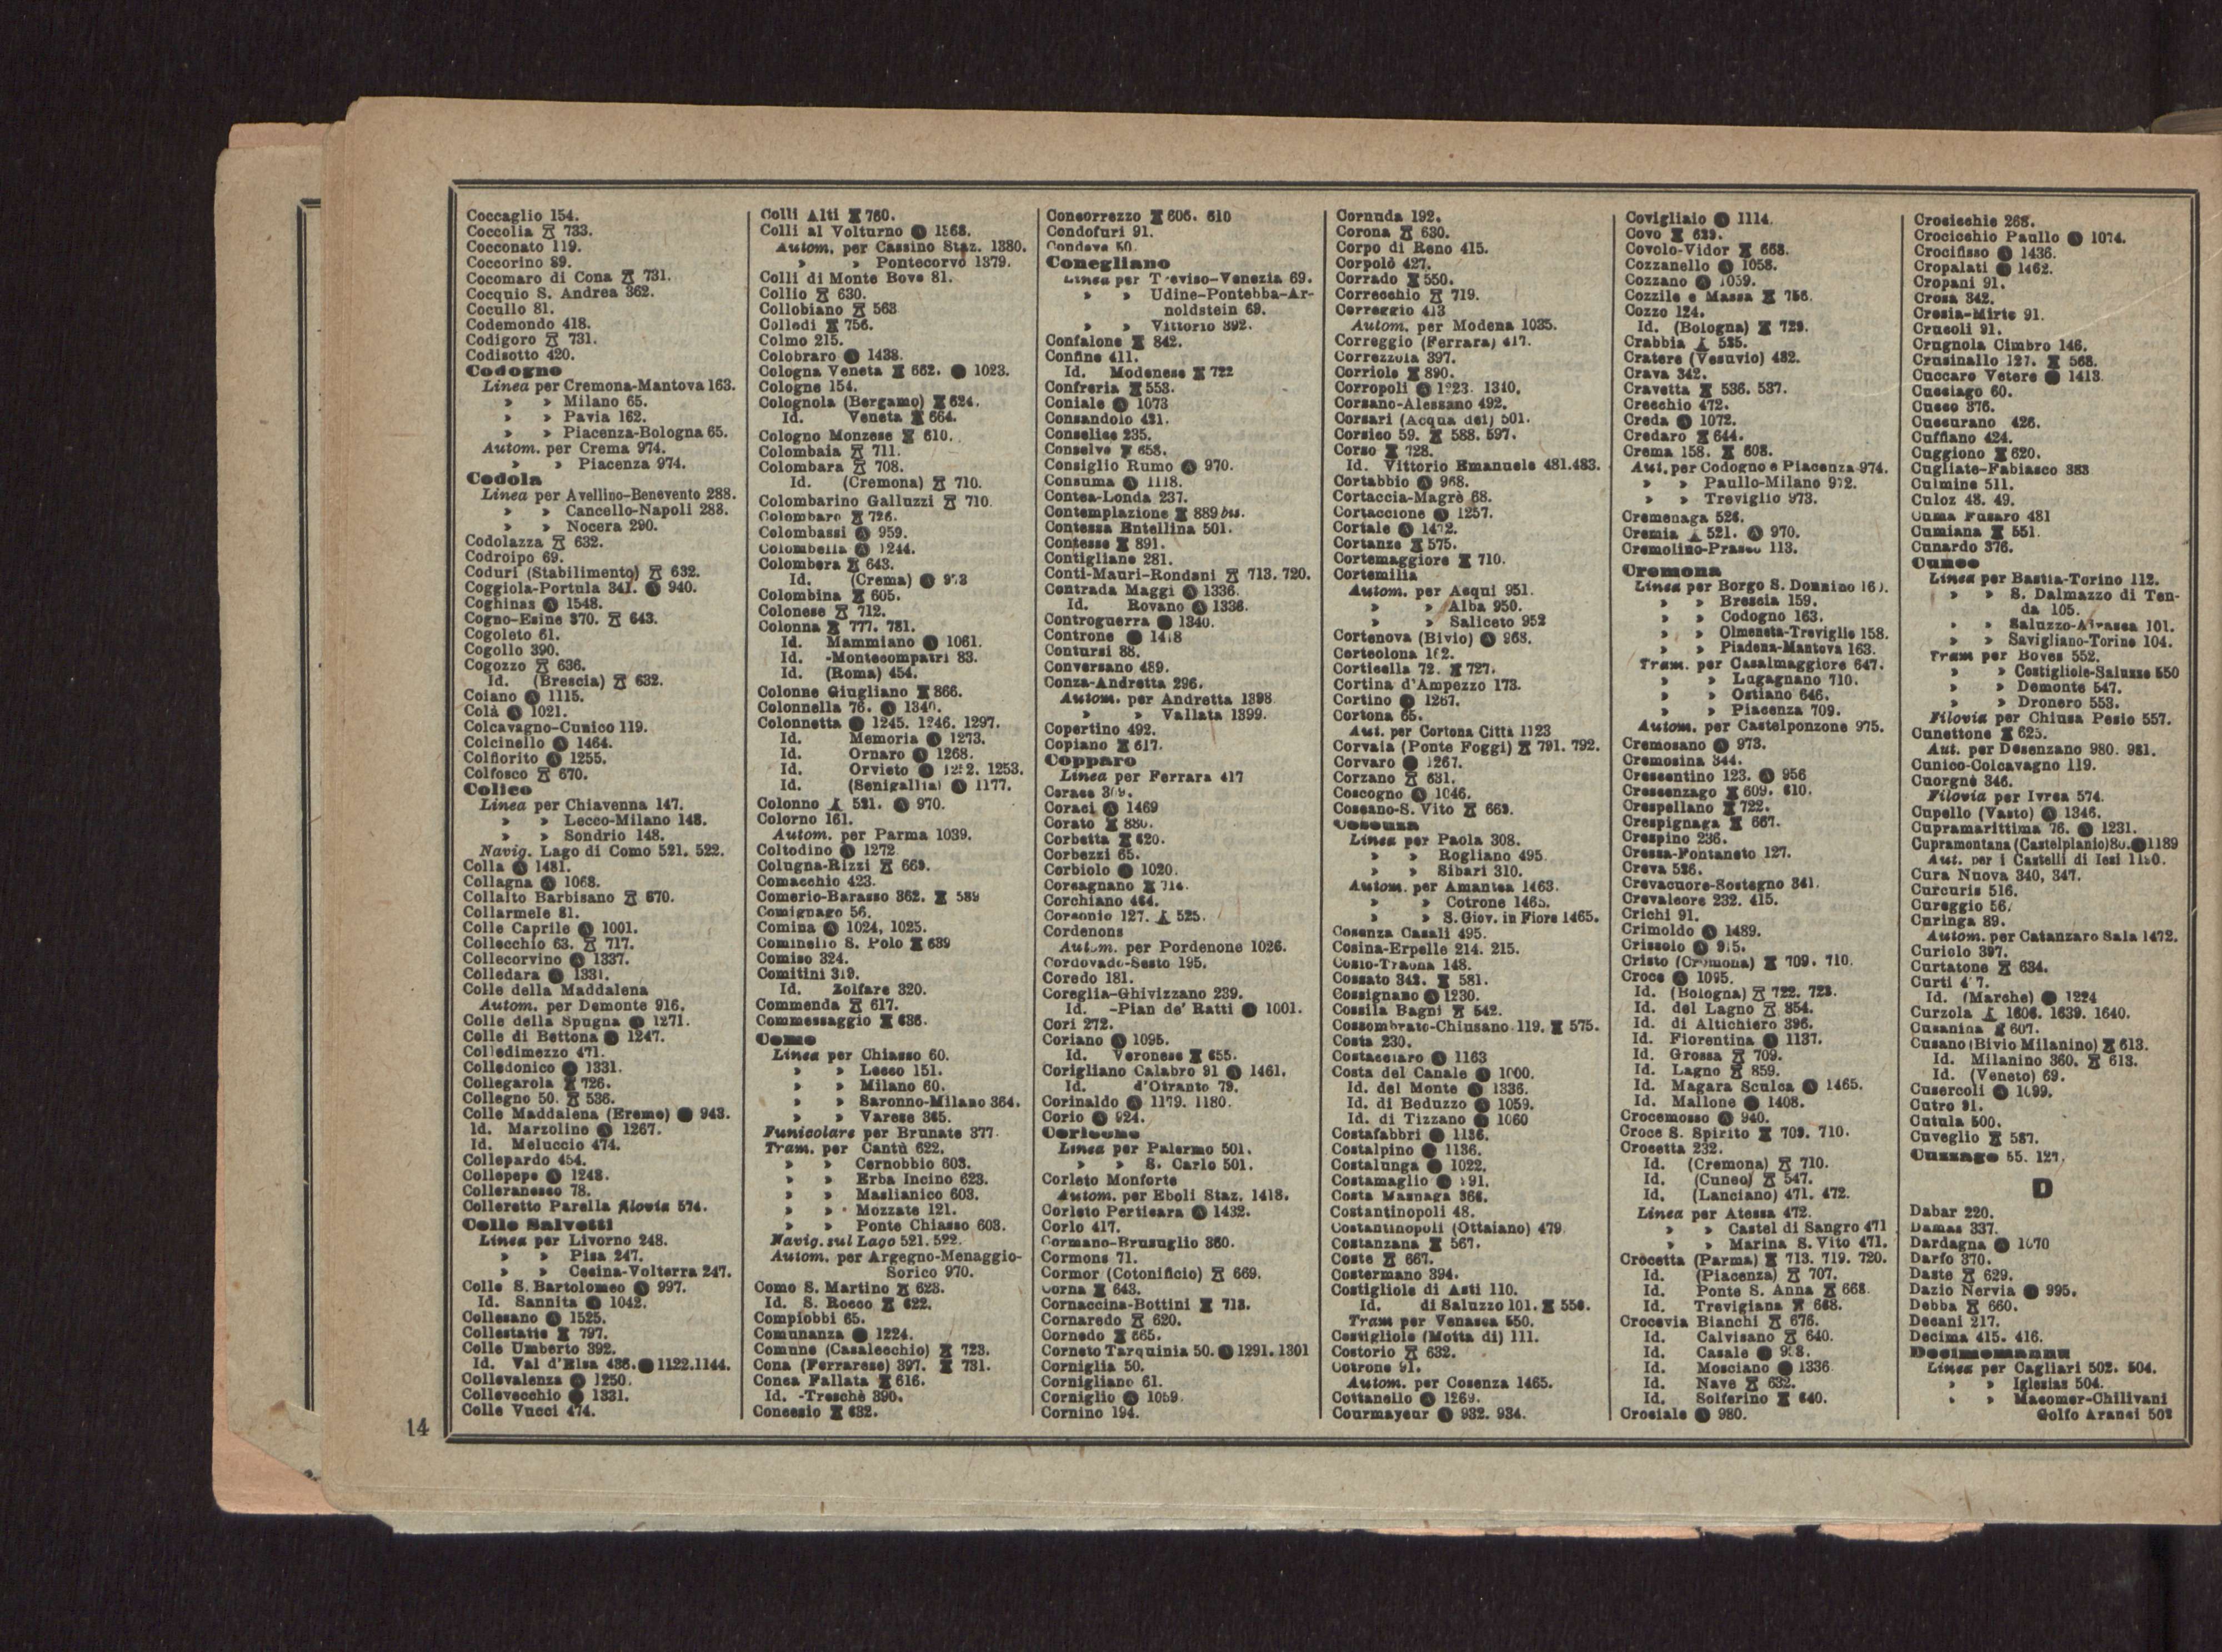 Coccaglio 154.
Coccolia 733.
Cocconato 119.
Coccorino 89.
Cocomaro di Cona 731.
Cocquio S. Andrea 362.
Cocullo 81.
Codemondo 418.
Codigoro 731.
Codisotto 420.
Codogno
Linea per Cremona-Mantova 163.
» » Milano 65.
» » Pavia 162.
» » Piacenza-Bologna 65.
Autom. per Crema 974.
» » Piacenza 974.
Codola
Linea per Avellino-Benevento 288.
» » Cancello-Napoli 288.
» » Nocera 290.
Codolazza 632.
Codroipo 69.
Coduri (Stabilimento) 632.
Coggiola-Portula 341. 940.
Coghinas 1548.
Cogno-Esine 370. 643.
Cogoleto 61.
Cogollo 390.
Cogozzo 636.
Id. (Brescia) 632.
Coiano 1115.
Colà 1021.
Colcavagno-Cunico 119.
Colcinello 1464.
Colfiorito 1255.
Colfosco 670.
Colico
Linea per Chiavenna 147.
» » Lecco-Milano 148.
» » Sondrio 148.
Navig. Lago di Como 521. 522.
Colla 1481.
Collagna 1068.
Collalto Barbisano 670.
Collarmele 81.
Colle Caprile 1001.
Collecchio 63. 717.
Collecorvino 1337.
Colledara 1331.
Colle della Maddalena
Autom. per Demonte 916.
Colle della Spugna 1271.
Colle di Bettona 1247.
Colledimezzo 471.
Colledonico 1331.
Collegarola 726.
Collegno 50. 536.
Colle Maddalena (Eremo) 943.
Id. Marzolino 1267.
Id. Meluccio 474.
Collepardo 454.
Collepepe 1248.
Colleranesco 78.
Colleretto Parella filovia 574.
Colle Salvetti
Linea per Livorno 248.
» » Pisa 247.
» » Cecina-Volterra 247.
Colle S. Bartolomeo 997.
Id. Sannita 1042.
Collesano 1525.
Collestatte 797.
Colle Umberto 392.
Id. Val d'Elsa 436. 1122.1144.
Collevalenza 1250.
Collevecchio 1331.
Colle Vucci 474.
Colli Alti 760.
Colli al Volturno
Autom. per Cassino Staz. 1380.
» » Pontecorvo 1379.
Colli di Monte Bove 81.
Collio 630.
Collobiano 563
Collodi 756.
Colmo 215.
Colobraro 1438.
Cologna Veneta 662. 1023.
Cologne 154.
Colognola (Bergamo) 624.
Id. Veneta 664.
Cologno Monzese 610.
Colombaia 711.
Colombara 708.
Id. (Cremona) 710.
Colombarino Galluzzi 710.
Colombaro 726.
Colombassi 959.
Colombella 1244.
Colombera 643.
Id. (Crema)
Colombina 605.
Colonese 712.
Colonna 777. 781.
Id. Mammiano 1061.
Id. -Montecompatri 83.
Id. (Roma) 454.
Colonne Giugliano 866.
Colonnella 76. 1340.
Colonnetta 1245. 1246. 1297.
Id. Memoria 1273.
Id. Ornaro 1268.
Id. Orvieto 1253.
Id. (Senigallia) 1177.
Colonno 521. 970.
Colorno 161.
Autom. per Parma 1039.
Coltodino 1272
Colugna-Rizzi 669.
Comacchio 423.
Comerio-Barasso 362. 589
Comignago 56.
Comina 1024, 1025.
Cominello S. Polo 639
Comiso 324.
Comitini 319.
Id. Zolfare 320.
Commenda 617.
Commessaggio 636.
Como
Linea per Chiasso 60.
» » Lecco 151.
» » Milano 60.
» » Saronno-Milano 364.
» » Varese 365.
Funicolare per Brunate 377.
Tram. per Cantù 622.
» » Cernobbio 603.
» » Erba Incino 623.
» » Maslianico 603.
» » Mozzate 121.
» » Ponte Chiasso 603.
Navig. sul Lago 521. 522.
Autom. per Argegno-Menaggio-
Sorico 970.
Como S. Martino 623.
Id. S. Rocco 622.
Compiobbi 65.
Comunanza 1224.
Comune (Casalecchio) 723.
Cona (Ferrarese) 397. 731.
Conca Fallata 616.
Id. -Treschè 390.
Concesio 632.
Concorrezzo 606. 610
Condofuri 91.
Condove 50.
Conegliano
Linea per Treviso-Venezia 69.
» » Udine-Pontebba-Ar-
noldstein 69.
» » Vittorio 392.
Confalone 842.
Confine 411.
Id. Modenese 722
Confreria 553.
Coniale 1073
Consandolo 421.
Conselice 235.
Conselve 658.
Consiglio Rumo 970.
Consuma 1118.
Contea-Londa 237.
Contemplazione 889 bis.
Contessa Entellina 501.
Contesse 891.
Contigliano 281.
Conti-Mauri-Rondani 713. 720.
Contrada Maggi 1336.
Id. Rovano 1336.
Controguerra 1340.
Controne
Contursi 88.
Conversano 489.
Conza-Andretta 296.
Autom. per Andretta 1398
» » Vallata 1399.
Copertino 492.
Copiano 617.
Copparo
Linea per Ferrara 417
Corace
Coraci 1469
Corato 880.
Corbetta 620.
Corbezzi 65.
Corbiolo 1020.
Corcagnano 714.
Corchiano 464.
Corconio 127. 525.
Cordenons
Autom. per Pordenone 1026.
Cordovado-Sesto 195.
Coredo 181.
Coreglia-Ghivizzano 239.
Id. -Pian de' Ratti 1001.
Cori 272.
Coriano 1095.
Id. Veronese 655.
Corigliano Calabro 91 1461.
Id. d'Otranto 79.
Corinaldo 1179. 1180.
Corio 924.
Corleone
Linea per Palermo 501.
» » S. Carlo 501.
Corleto Monforte
Autom. per Eboli Staz. 1418.
Corleto Perticara 1432.
Corlo 417.
Cormano-Brusuglio 360.
Cormons 71.
Cormor (Cotonificio) 669.
Corna 643.
Cornaccina-Bottini 713.
Cornaredo 620.
Cornedo 665.
Corneto Tarquinia 50. 1291. 1301
Corniglia 50.
Cornigliano 61.
Corniglio 1059.
Cornino 194.
Cornuda 192.
Corona 630.
Corpo di Reno 415.
Corpolò 427.
Corrado 550.
Correcchio 719.
Correggio 413
Autom. per Modena 1035.
Correggio (Ferrara) 417.
Correzzola 397.
Corriolo 890.
Corropoli 1223. 1340.
Corsano-Alessano 492.
Corsari (Acqua dei) 501.
Corsico 59. 588. 597.
Corso 728.
Id. Vittorio Emanuele 481.483.
Cortabbio 968.
Cortaccia-Magrè 68.
Cortaccione 1257.
Cortale 1472.
Cortanze 575.
Cortemaggiore 710.
Cortemilia
Autom. per Acqui 951.
» » Alba 950.
» » Saliceto 952
Cortenova (Bivio) 968.
Corteolona 162.
Corticella 72. 727.
Cortina d'Ampezzo 173.
Cortino 1267.
Cortona 65.
Aut. per Cortona Città 1123
Corvaia (Ponte Foggi) 791. 792.
Corvaro 1267.
Corzano 631.
Coscogno 1046.
Coseano-S. Vito 669.
Cosenza
Linea per Paola 308.
» » Rogliano 495.
» » Sibari 310.
Autom. per Amantea 1463.
» » Cotrone 1465.
» » S. Giov. in Fiore 1465.
Cosenza Casali 495.
Cosina-Erpelle 214. 215.
Cosio-Traona 148.
Cossato 342. 581.
Cossignano 1230.
Cossila Bagni 542.
Cossombrato-Chiusano 119. 575.
Costa 230.
Costacciaro 1163
Costa del Canale 1000.
Id. del Monte 1336.
Id. di Beduzzo 1059.
Id. di Tizzano 1060
Costafabbri 1136.
Costalpino 1136.
Costalunga 1022.
Costamaglio
Costa Masnaga 366.
Costantinopoli 48.
Costantinopoli (Ottaiano) 479
Costanzana 567.
Coste 667.
Costermano 394.
Costigliole di Asti 110.
Id. di Saluzzo 101. 550.
Tram per Venasca 550.
Costigliole (Motta di) 111.
Costorio 632.
Cotrone 91.
Autom. per Cosenza 1465.
Cottanello 1269.
Courmayeur 932. 934.
Covigliaio 1114.
Covo 629.
Covolo-Vidor 668.
Cozzanello 1058.
Cozzano 1059.
Cozzile e Massa 756.
Cozzo 124.
Id. (Bologna) 729.
Crabbia 525.
Cratere (Vesuvio) 482.
Crava 342.
Cravetta 536. 537.
Crecchio 472.
Creda 1072.
Credaro 644.
Crema 158. 608.
Aut. per Codogno e Piacenza 974.
» » Paullo-Milano 972.
» » Treviglio 973.
Cremenaga 526.
Cremia 521. 970.
Cremolino-Prasco 113.
Cremona
Linea per Borgo S. Donnino
» » Brescia 159.
» » Codogno 163.
» » Olmeneta-Treviglio 158.
» » Piadena-Mantova 163.
Tram. per Casalmaggiore 647.
» » Lugagnano 710.
» » Ostiano 646.
» » Piacenza 709.
Autom. per Castelponzone 975.
Cremosano 973.
Cremosina 344.
Crescentino 123. 956
Crescenzago 609. 610.
Crespellano 722.
Crespignaga 667.
Crespino 236.
Cressa-Fontaneto 127.
Creva 526.
Crevacuore-Sostegno 341.
Crevalcore 232. 415.
Crichi 91.
Crimoldo 1489.
Crissolo 915.
Cristo (Cremona) 709. 710.
Croce 1095.
Id. (Bologna) 722. 723.
Id. del Lagno 854.
Id. di Altichiero 396.
Id. Fiorentina 1137.
Id. Grossa 709.
Id. Lagno 859.
Id. Magara Sculca 1465.
Id. Mallone 1408.
Crocemosso 940.
Croce S. Spirito 709. 710.
Crocetta 232.
Id. (Cremona) 710.
Id. (Cuneo) 547.
Id. (Lanciano) 471. 472.
Linea per Atessa 472.
» » Castel di Sangro 471
» » Marina S. Vito 471.
Crocetta (Parma) 713. 719. 720.
Id. (Piacenza) 707.
Id. Ponte S. Anna 668.
Id. Trevigiana 668.
Crocevia Bianchi 676.
Id. Calvisano 640.
Id. Casale
Id. Mosciano 1336
Id. Nave 632.
Id. Solferino 640.
Crociale 980.
Crocicchie 268.
Crocicchio Paullo 1074.
Crocifisso 1436.
Cropalati 1462.
Cropani 91.
Crosa 342.
Crosia-Mirto 91.
Crucoli 91.
Crugnola Cimbro 146.
Crusinallo 127. 568.
Cuccaro Vetere 1413.
Cucciago 60.
Cucco 376.
Cuccurano 426.
Cuffiano 424.
Cuggiono 620.
Cugliate-Fabiasco 383
Culmine 511.
Culoz 48. 49.
Cuma Fusaro 481
Cumiana 551.
Cunardo 376.
Cuneo
Linea per Bastia-Torino 112.
» » S. Dalmazzo di Ten-
da 105.
» » Saluzzo-Airasca 101.
» » Savigliano-Torino 104.
Tram per Boves 552.
» » Costigliole-Saluzzo 550
» » Demonte 547.
» » Dronero 553.
Filovia per Chiusa Pesio 557.
Cunettone 625.
Aut. per Desenzano 980. 981.
Cunico-Colcavagno 119.
Cuorgnè 346.
Filovia per Ivrea 574.
Cupello (Vasto) 1346.
Cupramarittima 76. 1231.
Cupramontana (Castelplanio) 80. 1189
Aut. per i Castelli di Iesi 1190.
Cura Nuova 340, 347.
Curcuris 516.
Cureggio 56.
Curinga 89.
Autom. per Catanzaro Sala 1472.
Curiolo 397.
Curtatone 634.
Curti
Id. (Marche) 1224
Curzola 1606. 1639. 1640.
Cusanina 607.
Cusano (Bivio Milanino) 613.
Id. Milanino 360. 613.
Id. (Veneto) 69.
Cusercoli 1099.
Cutro 91.
Cutula 500.
Cuveglio 587.
Cuzzago 55. 127.
D
Dabar 220.
Damas 337.
Dardagna 1070
Darfo 370.
Daste 629.
Dazio Nervia 995.
Debba 660.
Decani 217.
Decima 415. 416.
Decimomannu
Linea per Cagliari 502. 504.
» » Iglesias 504.
» » Macomer-Chilivani
Golfo Aranci 502
14